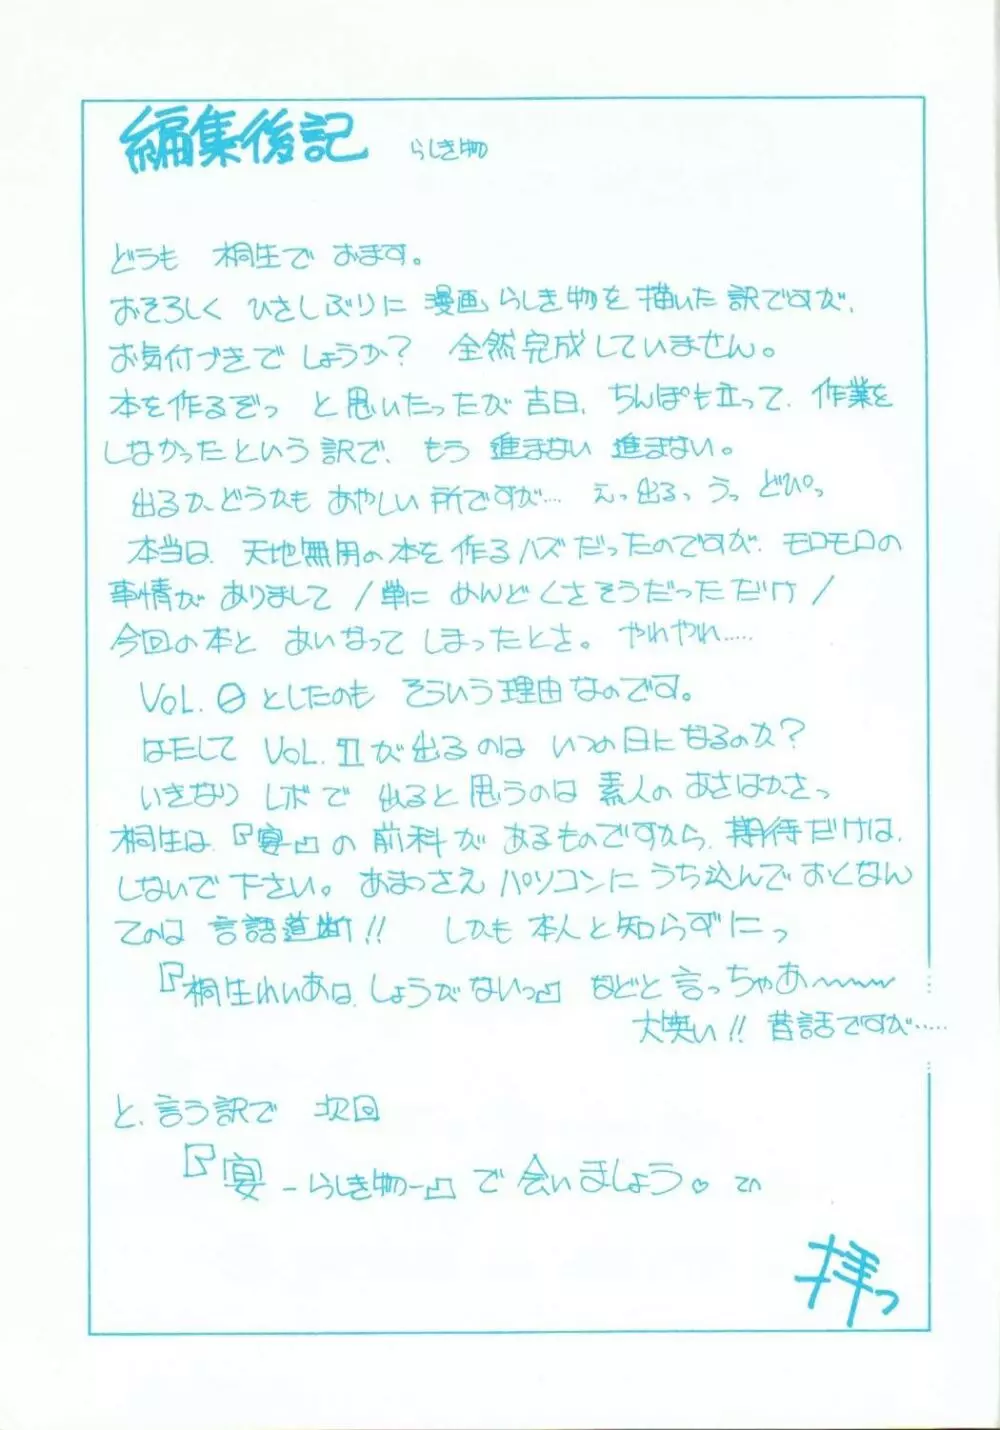 編集後記 らしき物
どうも 桐生で おます。
おそろしく ひさしぶりに 漫画らしき物を描いた訳ですが、
お気付づきで しょうか？ 全然完成していません。
本を作るぞっ と思いたったが吉日、ちんぽも立って、作業を
しなかったという訳で、もう 進まない 進まない。
出るか、どうかも あやしい所ですが… えっ出るっ うっ どぴっ
本当は、天地無用の本を作るハズだったのですが、モロモロの
事情が ありまして /単に めんどくさそうだっただけ/
今回の本と あいなって しまったとさ。 やれやれ……
VOL.0としたのも そういう理由なのです。
はたして VOL.Ⅱが出るのは いつの日になるのか？
いきなり レボで 出ると思うのは 素人の あさはかさっ
桐生は、『宴』の前科が あるものですから、期待だけは、
しないで下さい。あまつさえ パソコンに うち込んで おくなん
てのは 言語道断!! しかも本人と知らずにっ
『桐生れいあは、しょうがないっ』などと言っちゃあ〜〜〜
大笑い!! 昔話ですが……
と、言う訳で 次回
『宴-らしき物-』で会いましょう♡ でわ
拝っ